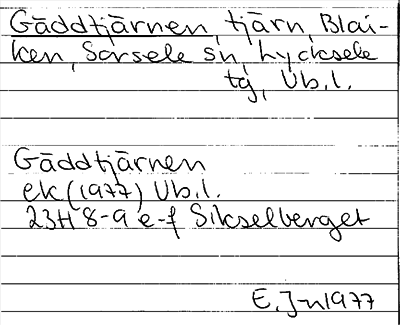 Gäddtjärnen, tjärn, Blai-
ken, Sorsele sn, Lycksele
tg, Vb.l.
Gäddtjärnen
ek (1977) Vb.l.
23H 8-9 e-f Sikselberget
E. J-n 1977